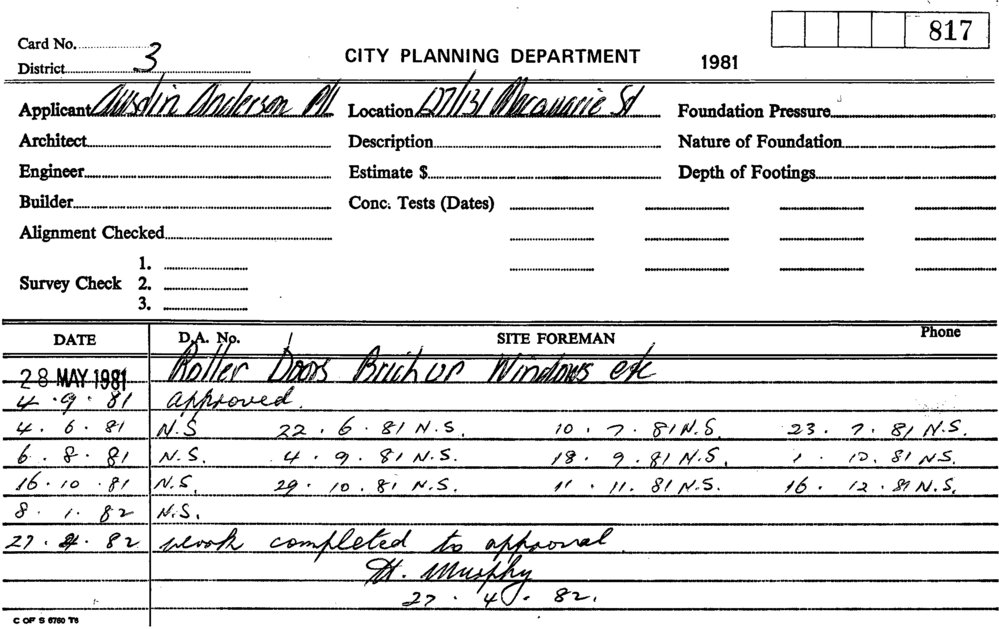 817
Card No.
CITY PLANNING DEPARTMENT 1981
District 3
Applicant Austin Anderson P/L Location 127/131 Macquarie St Foundation Pressure
Architect Description Nature of Foundation
Engineer Estimate $ Depth of Footings
Builder Conc. Tests (Dates)
Alignment Checked
1.
Survey Check 2.
3.
DATE D.A. No. SITE FOREMAN Phone
28 MAY 1981 Roller Doors Brick up Windows etc
4.9.81 approved.
4.6.81 N.S 22.6.81 N.S. 10.7.81 N.S. 23.7.81 N.S.
6.8.81 N.S. 4.9.81 N.S. 18.9.81 N.S. 1.10.81 N.S.
16.10.81 N.S. 29.10.81 N.S. 11.11.81 N.S. 16.12.81 N.S.
8.1.82 N.S.
27.4.82 work completed to approval.
Murphy
27.4.82.
C OF S 6760 T6